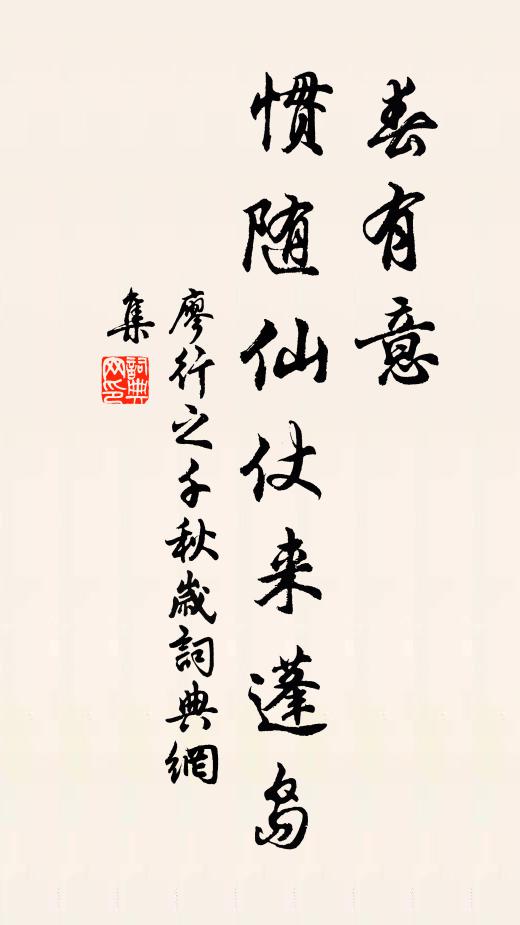 春有意
惯随仙仗来蓬岛
廖行之千秋歲詞典網
集
詞典
网印